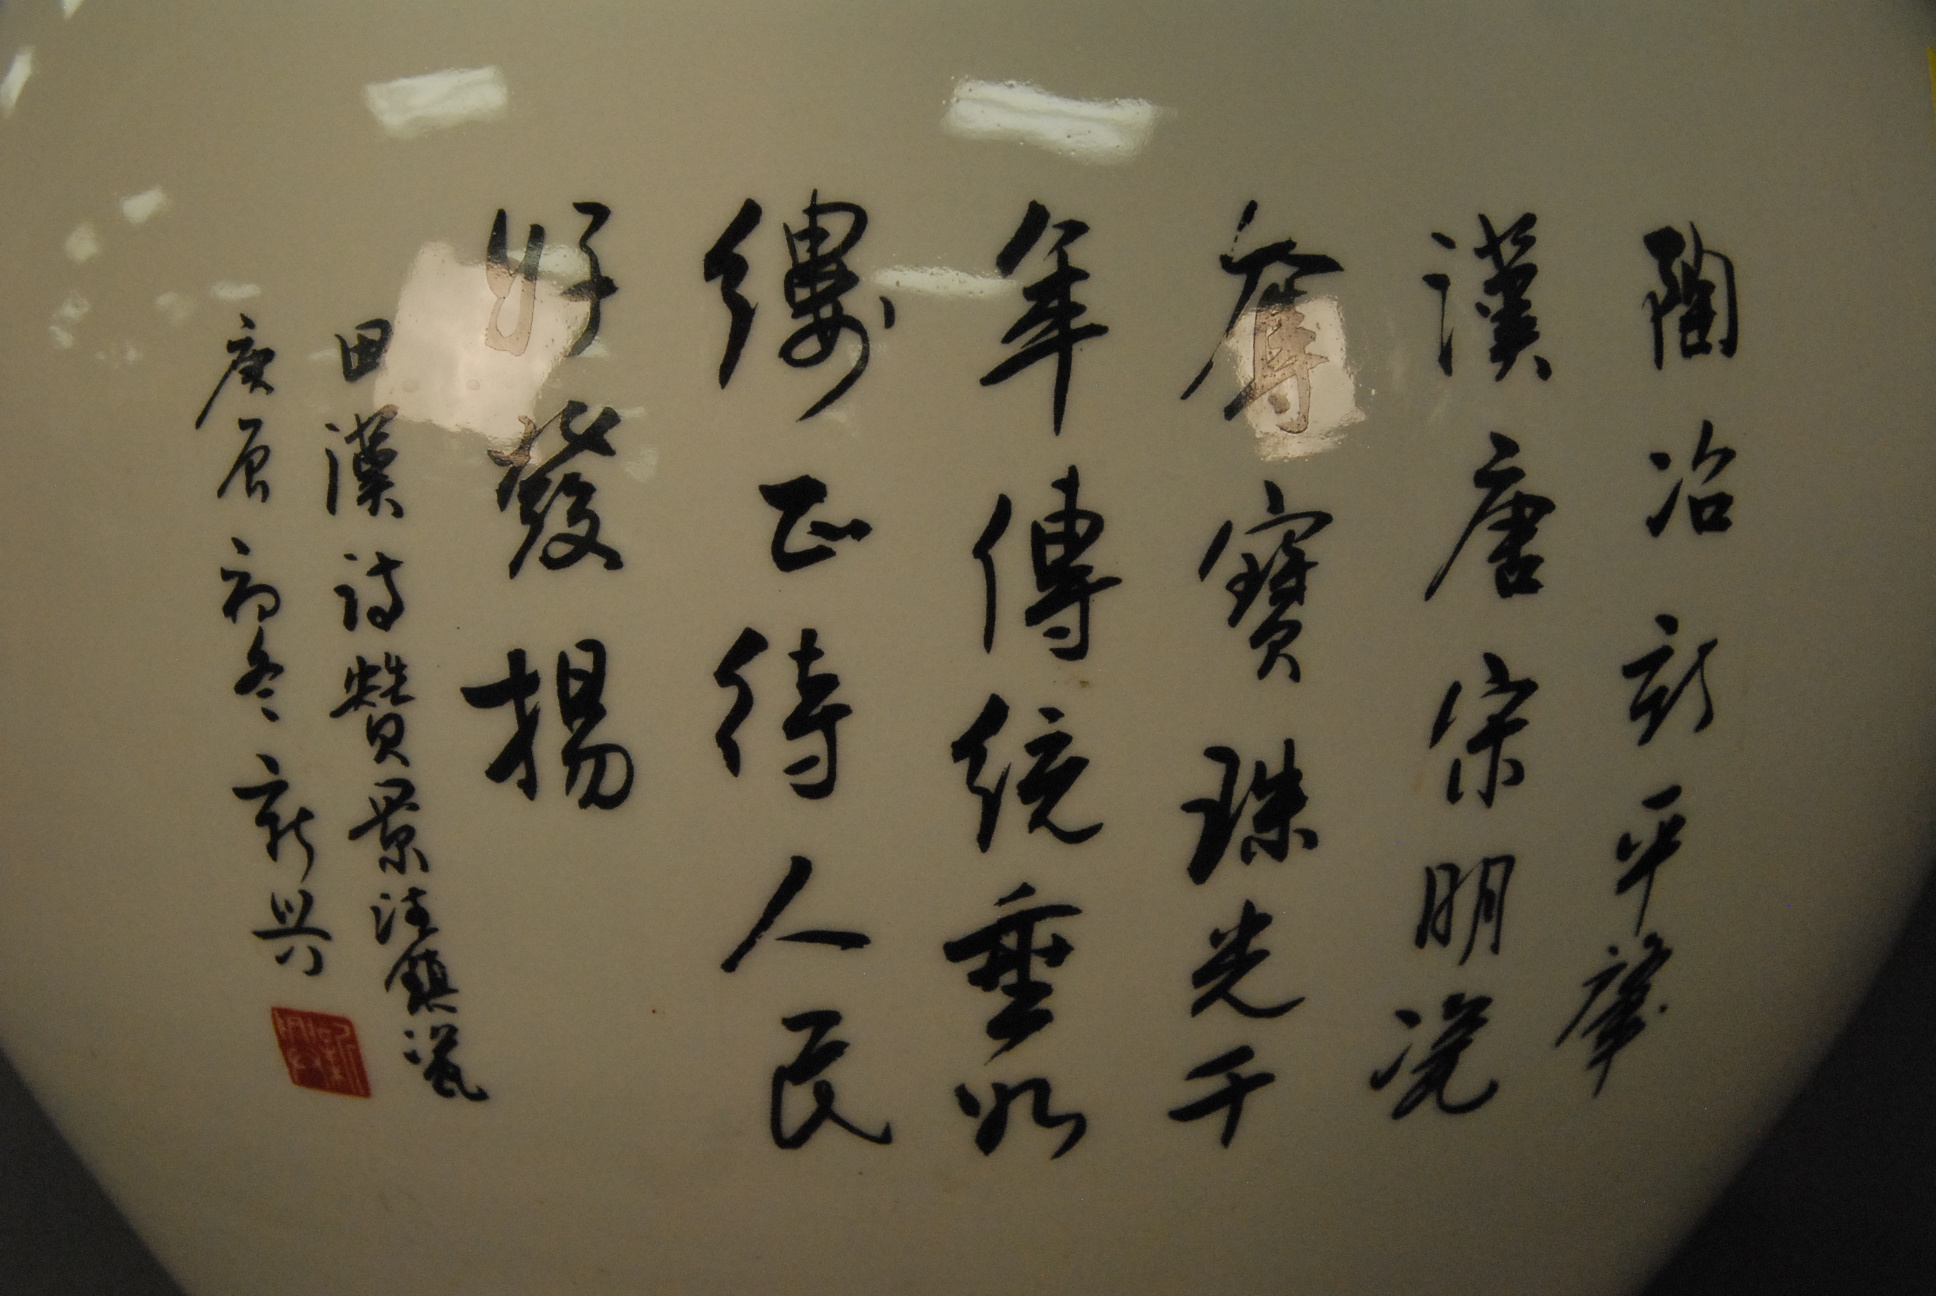 陶冶新平肇
漢唐宋明瓷
奪寶珠光千
年傳統垂如
縷正待人民
好發揚
田漢詩贊景德鎮瓷
庚辰初冬新興